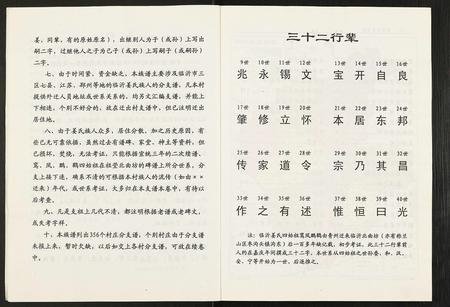 姜,同辈,有的原姓原名),出继别人为子(或孙)上写出
嗣二字,过继他人之子为己子(或孙)上写嗣子(或嗣孙)
二字。
七、由于时间紧,资金缺乏,本族谱主要涉及临沂市三
区七县,江苏、邳州等地的临沂姜氏族人的分支谱。凡本村
提供外迁人员地址或世系关系的,均另文汇编支谱,并能上
下相连。个别不好分的,故在迁出村支谱中,但已注明迁出
居住地。
八、由于姜氏族人众多,居住分散,加之历史原因,有
些已无可靠依据,虽然过去有谱碑、家堂、神主等资料,但
已损坏,焚烧,无法考证。只能根据宣统三年的二次续谱,
鸾、凤、鹏、鹤四始祖在祖茔北面坊的碑谱上所分世系,分
支上接下连,确系不清的可根据本村族人的流传(如由××
迁来)年代,或世系考证,大多归在本支谱本卷中,有待以
后考查。
九、凡是支祖上几代不清,都注明根据老谱或老碑文,
或失考字样。
十、本族谱列出356个村庄分支谱,个别村庄由于分支
谱未报上来,暂时欠缺,以后如交上各村分支谱,可放在续卷
中。
三十二行辈
9世 10世 11世 12世 13世 14世 15世 16世
兆 永 锡 文 宝 开 自 良
17世 18世 19世 20世 21世 22世 23世 24世
肇 修 立 怀 本 居 东 邦
25世 26世 27世 28世 29世 30世 31世 32世
传 家 道 令 宗 乃 其 昌
33世 34世 35世 36世 37世 38世 39世 40世
作 之 有 述 惟 恒 曰 光
注:临沂姜氏四始祖鸾凤鹏鹤由青州迁来临沂北面坊(亦有称兰
山区枣沟头镇沟东)后一百多年缺记载,初步考证,此三十二行辈前
人约在嘉庆年间撰成三十二字,本世系从四始祖之世孙委、和、汉、
安、宁等开始为一世,后连推之。